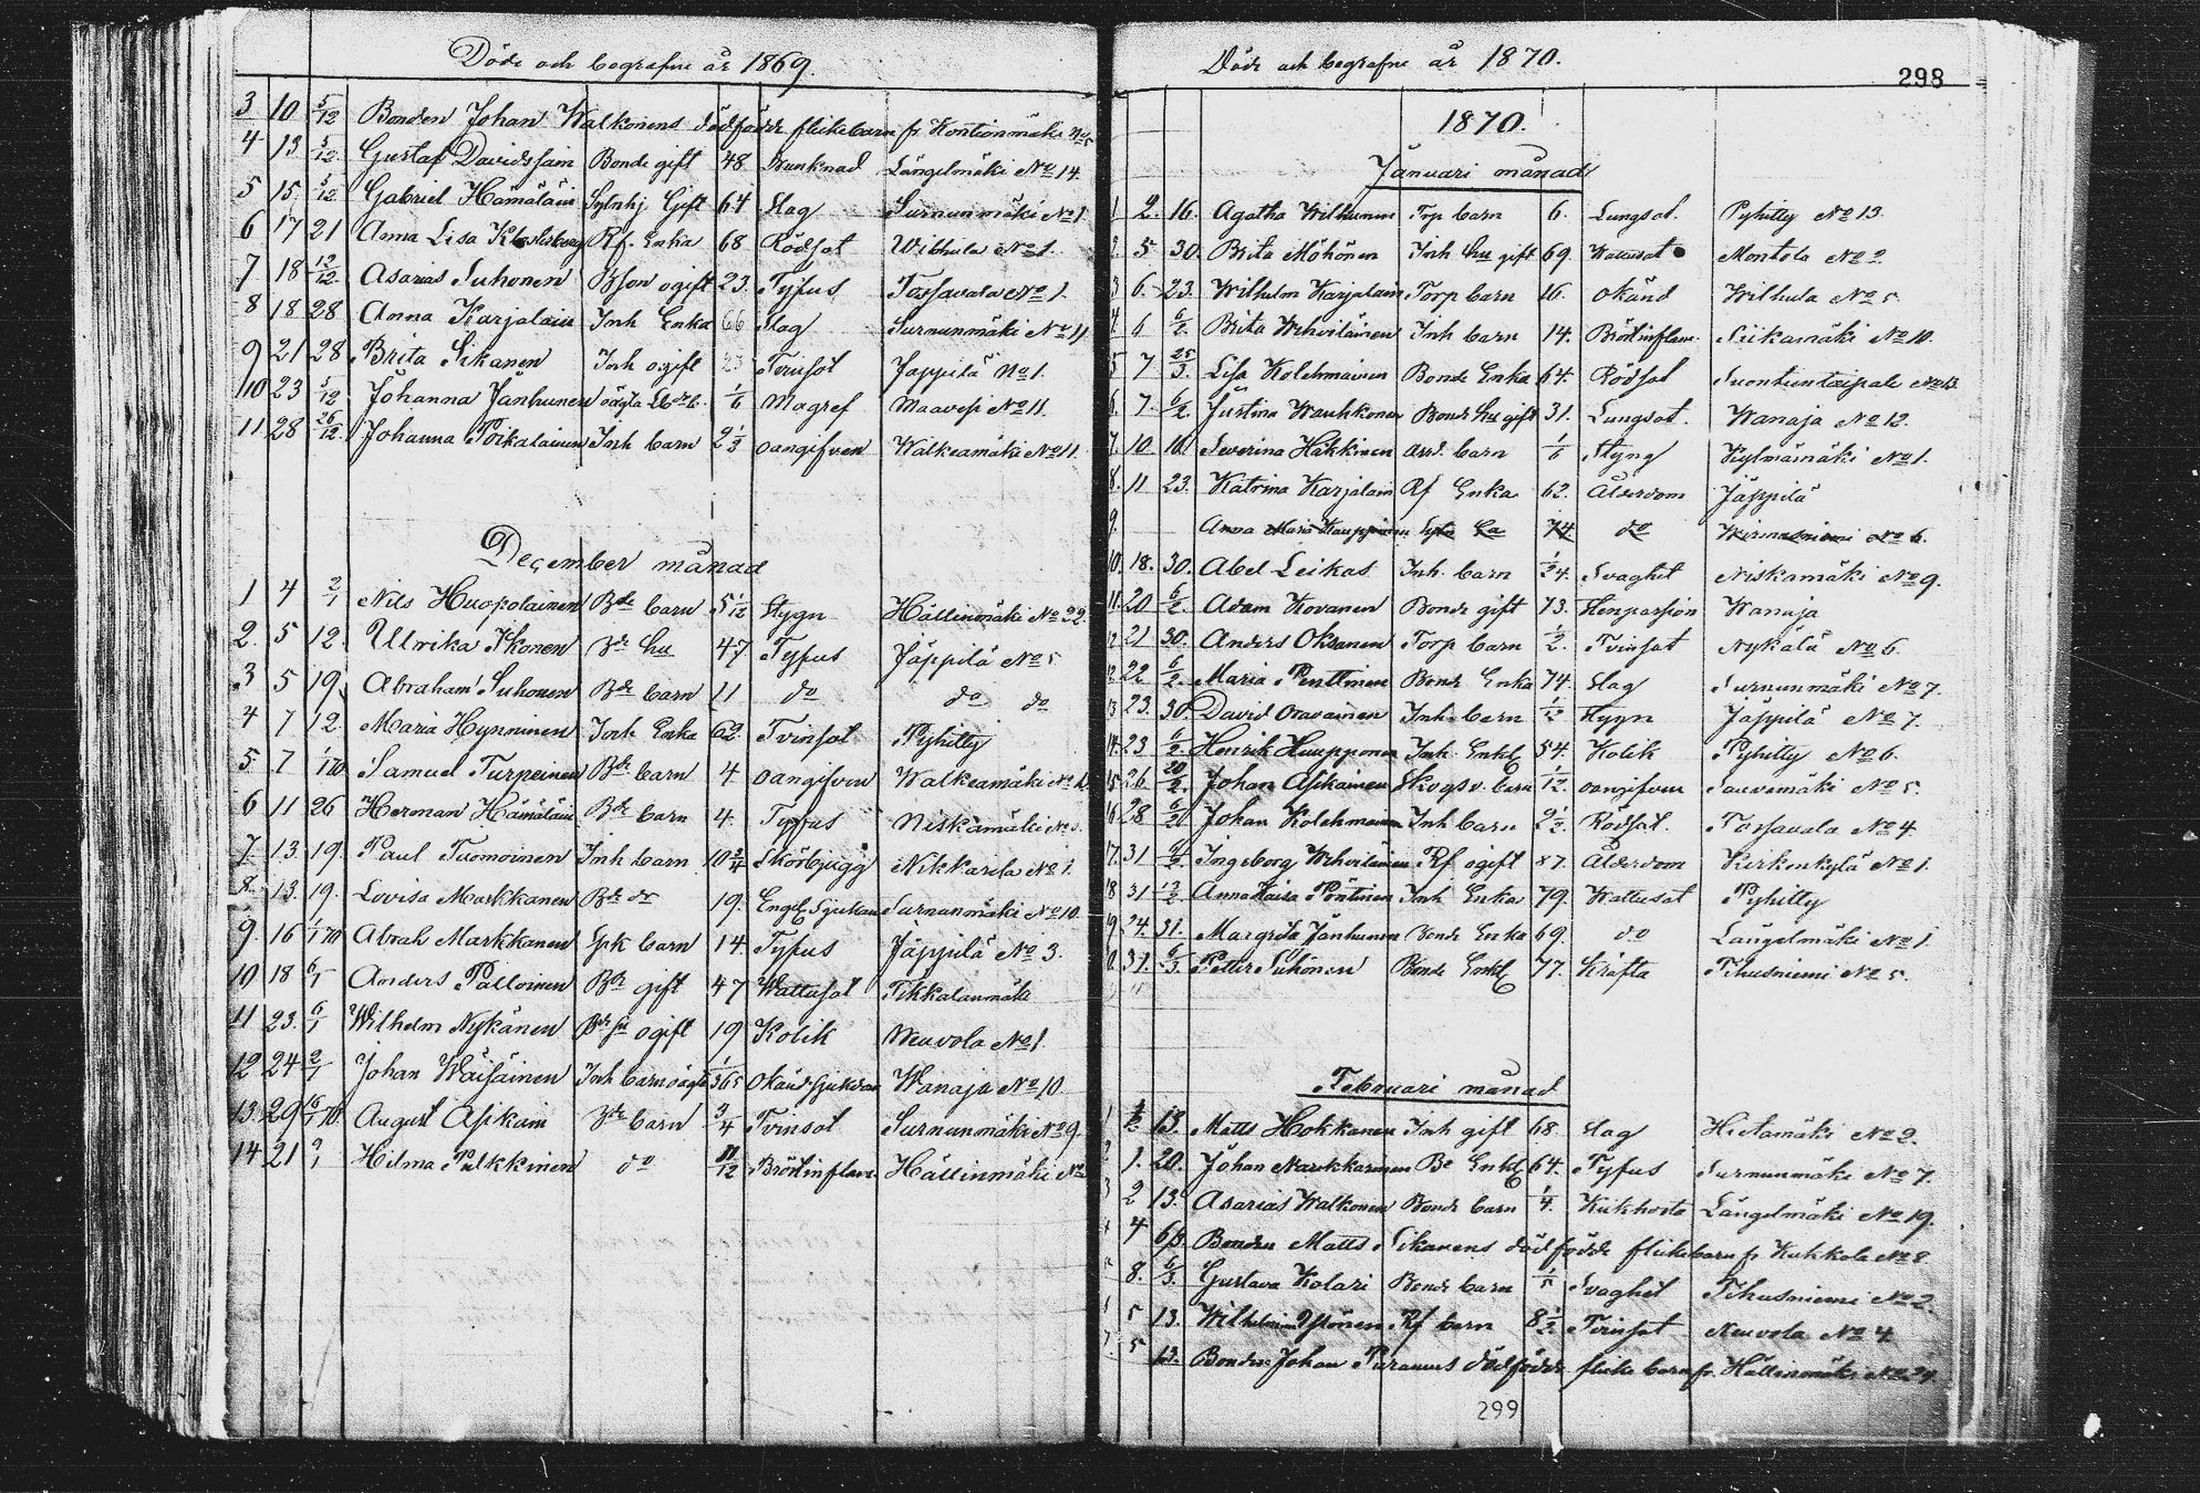 Döde och begrafne år 1869.
3 10 5/12 Bonden Johan Walkonens dödfödde flickebarn fr Kontionmäki No 5
4 13 5/12 Gustaf Davidssain Bonde gift 48 Drunknad Längelmäki No 14.
5 15 5/12 Gabriel Hämäläin Sytnhj Gift 64 Slag Surnunmäki No 1
6 17 21 Anna Lisa Rf. Enka 68 Rödsot Wihula No 1.
7 18 12/12 Asarias Suhonen Bson ogift 23. Tyfus Tossavala No 1.
8 18 28 Anna Karjalain Inh Enka 66 Slag Surnunmäki No 11
9 21 28 Brita Sikanen Inh ogift 23 Tvinsot Jäppilä No 1.
10 23 5/12 Johanna Janhunen oägta 1/6 Magref Maavesi No 11.
11. 28 26/12 Johanna Poikalainen Inh barn 2 1/2 oangifven Walkeamäki No 11
December månad
1 4 2/1 Nils Huopolainen Bde barn 5 1/12 Stygn Hällinmäki No 22.
2. 5 12. Ulrika Ikonen Bde hu 47 Tyfus Jäppilä No 5
3 5 19. Abraham Suhonen Bde barn 11 do do do
4 7 12. Maria Hynninen Inh Enka 62. Tvinsot Pyhitty
5 7 Samuel Turpeinen Bde barn 4 oangifven Walkeamäki
6 11 26 Herman Hämäläin Bde barn 4. Tyfus Niskamäki
7 13. 19. Paul Tuomoinen Inh barn 10 3/4 Skörbjugg Nikkarila No 1.
8. 13. 19. Lovisa Markkanen Bde do 19. Engl. Sjukan Surnunmäki No 10
9. 16 1/1 70 Abrah Markkanen Spk barn 14 Tyfus Jäppilä No 3.
10 18 6/1 Anders Palloinen Bde gift 47 Wattusot Tikkalanmäki
11 23. 6/1 Wilhelm Nykänen ogift 19 Kolik Neuvola No 1
12 24 2/1 Johan Wäisäinen Inh barn oägta 1/365 Okänd sjukdom Wanaja No 10
13. 29 16/1 70. August Asikain Bde barn 3/4 Tvinsot Surnunmäki No 9.
14 21 9/1 Hilma Pulkkinen do 11/12 Bröstinflam. Hällinmäki No
Döde och begrafne år 1870.
298
1870.
Januari månad
1 2. 16. Agatha Wilhunen Trp barn 6. Lungsot. Pyhitty No 13.
2. 5 30. Brita Möhönen Inh hu gift 69. Wattusot Montola No 2
3 6. 23. Wilhelm Karjalain Torp barn 16. Okänd Wilhula No 5
4 6 6/2. Brita Wehviläinen Inh barn 14. Bröstinflam. Siikamäki No 10.
5 7 25/3. Lisa Kolehmainen Bonde Enka 64. Rödsot Suontientaipale No 13.
6. 7. 6/2. Justina Wauhkonen Bonde hu gift 31. Lungsot. Wanaja No 12.
7. 10 16 Severina Häkkinen arrd. barn 1/6 Styng Kylmämäki No 1.
8. 11 23. Katrina Karjalain Rf Enka 62. Ålderdom Jäppilä
9. Anna Maria Kauppinen 74. do Wirmasniemi No 6.
10. 18. 30. Abel Leikas Inh. barn 1/24. Svaghet Niskamäki No 9.
11. 20 6/2. Adam Kovanen Bonde gift 73. Wanaja
12 21 30. Anders Oksanen Torp barn 1/2. Tvinsot Nykälä No 6.
12 22 6/2. Maria Penttinen Bonde Enka 74. Slag Surnunmäki No 7.
13 23. 30. David Oravainen Inh. barn 1/12 Stygn Jäppilä No 7.
14. 23 6/2. Henrik Huupponen Inh. Enkl 54. Kolik Pyhitty No 6.
15 26 20/2. Johan Asikainen Skogsv. barn 1/12. oangifven Sauvamäki No 5.
16 28 6/2 Johan Kolehmainen Inh barn 2 1/2. Rödsot. Tossavala No 4.
17. 31 6/2. Ingeborg Wehviläinen Rf ogift 87. Ålderdom Kirkonkylä No 1.
18 31 13/2 Anna Kaisa Pöntinen Inh Enka 79. Wattusot Pyhitty
19 24. 31. Margreta Janhunen Bonde Enka 69. do Längelmäki No 1.
31. 6/3. Petter Suhonen Bonde Enkl 77. Kräfta Tihusniemi No 5.
Februari månad
1 13. Matts Hokkanen Inh gift 68. Slag Hietamäki No 2.
2 1. 20. Johan Markkanen Be Enkl 64. Tyfus Surnunmäki No 7.
3 2 13. Asarias Walkonen Bonde barn 1/4. Kikhosta Längelmäki No 19.
4 4 6/3. Bonden Matts Sikanens dödfödde flickebarn fr. Kukkola No 8
8. 6/3. Gustava Kolari Bonde barn 1/5 Svaghet Tihusniemi No 2.
5 13. Rf barn 8 1/2. Tvinsot Neuvola No 4
5 13. Bonden Johan Puranens dödfödde flicke barn fr. Hällinmäki No 24.
299